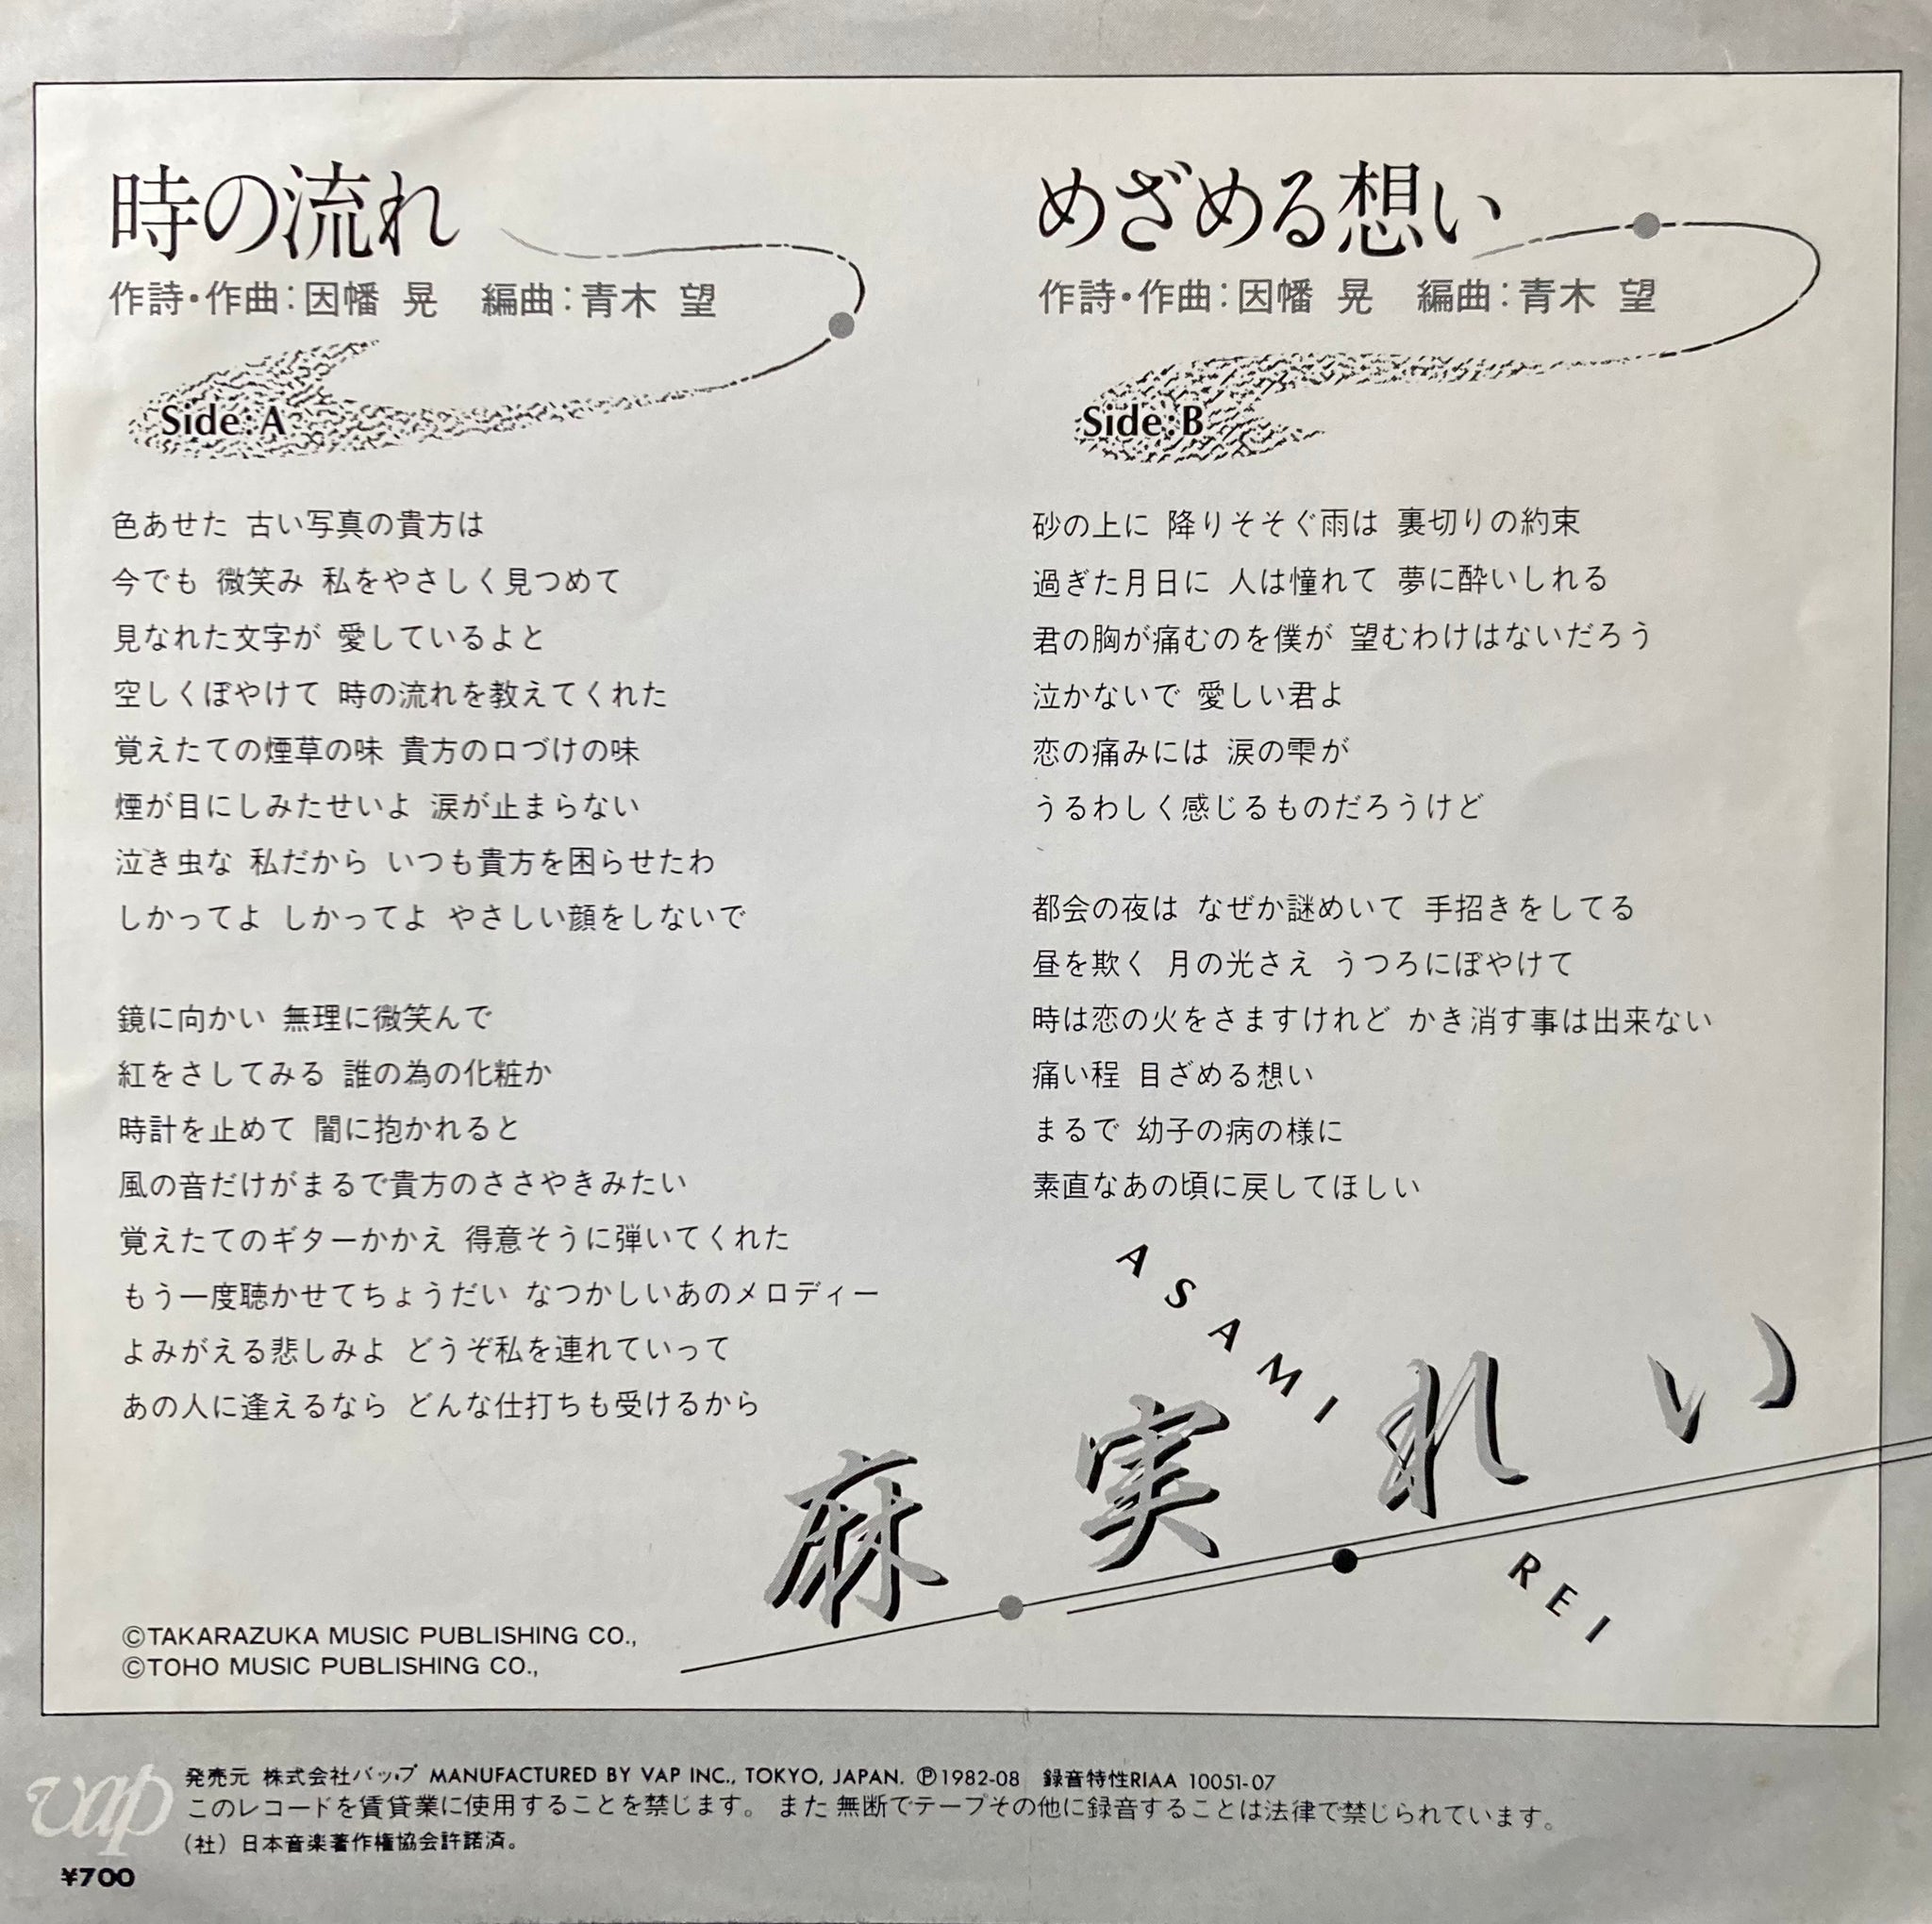 時の流れ
作詩・作曲：因幡 晃　編曲：青木 望
Side: A
色あせた 古い写真の貴方は
今でも 微笑み 私をやさしく見つめて
見なれた文字が 愛しているよと
空しくぼやけて 時の流れを教えてくれた
覚えたての煙草の味 貴方の口づけの味
煙が目にしみたせいよ 涙が止まらない
泣き虫な 私だから いつも貴方を困らせたわ
しかってよ しかってよ やさしい顔をしないで
鏡に向かい 無理に微笑んで
紅をさしてみる 誰の為の化粧か
時計を止めて 闇に抱かれると
風の音だけがまるで貴方のささやきみたい
覚えたてのギターかかえ 得意そうに弾いてくれた
もう一度聴かせてちょうだい なつかしいあのメロディー
よみがえる悲しみよ どうぞ私を連れていって
あの人に逢えるなら どんな仕打ちも受けるから
めざめる想い
作詩・作曲：因幡 晃　編曲：青木 望
Side: B
砂の上に 降りそそぐ雨は 裏切りの約束
過ぎた月日に 人は憧れて 夢に酔いしれる
君の胸が痛むのを僕が 望むわけはないだろう
泣かないで 愛しい君よ
恋の痛みには 涙の雫が
うるわしく感じるものだろうけど
都会の夜は なぜか謎めいて 手招きをしてる
昼を欺く 月の光さえ うつろにぼやけて
時は恋の火をさますけれど かき消す事は出来ない
痛い程 目ざめる想い
まるで 幼子の病の様に
素直なあの頃に戻してほしい
ASAMI
麻実れい
REI
©TAKARAZUKA MUSIC PUBLISHING CO.,
©TOHO MUSIC PUBLISHING CO.,
vap
発売元 株式会社バップ MANUFACTURED BY VAP INC., TOKYO, JAPAN. ℗1982-08 録音特性RIAA 10051-07
このレコードを賃貸業に使用することを禁じます。 また無断でテープその他に録音することは法律で禁じられています。
(社) 日本音楽著作権協会許諾済。
¥700